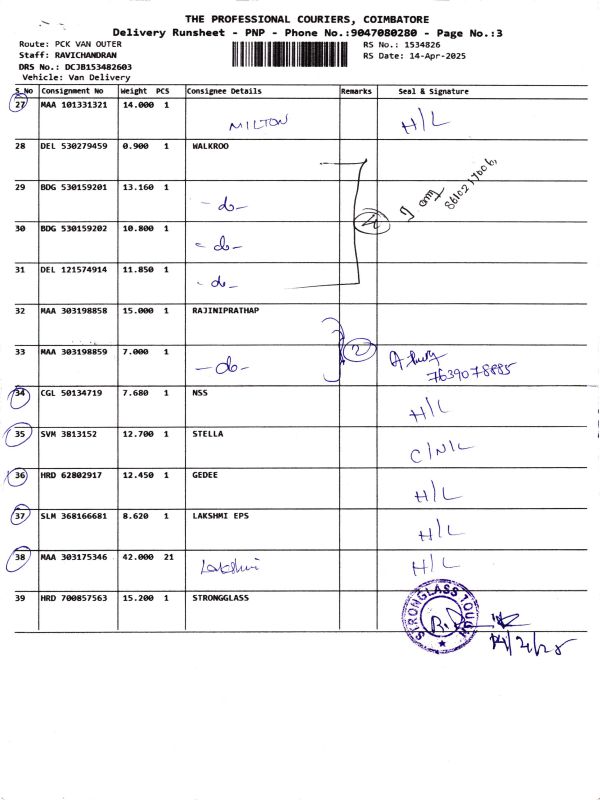 THE PROFESSIONAL COURIERS, COIMBATORE
Delivery Runsheet - PNP - Phone No.:9047080280 - Page No.:3
Route: PCK VAN OUTER RS No.: 1534826
Staff: RAVICHANDRAN RS Date: 14-Apr-2025
DRS No.: DCJB153482603
Vehicle: Van Delivery
S No Consignment No Weight PCS Consignee Details Remarks Seal & Signature
27 MAA 101331321 14.000 1 MILTON H/L
28 DEL 530279459 0.900 1 WALKROO
29 BDG 530159201 13.160 1 -do-
8610217006
4
30 BDG 530159202 10.800 1 -do-
31 DEL 121574914 11.850 1 -do-
32 MAA 303198858 15.000 1 RAJINIPRATHAP
33 MAA 303198859 7.000 1 -do- 2
7639078885
34 CGL 50134719 7.680 1 NSS H/L
35 SVM 3813152 12.700 1 STELLA C/N/L
36 HRD 62802917 12.450 1 GEDEE H/L
37 SLM 368166681 8.620 1 LAKSHMI EPS H/L
38 MAA 303175346 42.000 21 Lakshmi H/L
39 HRD 700857563 15.200 1 STRONGGLASS
STRONGLASS TOUGH
14/4/25